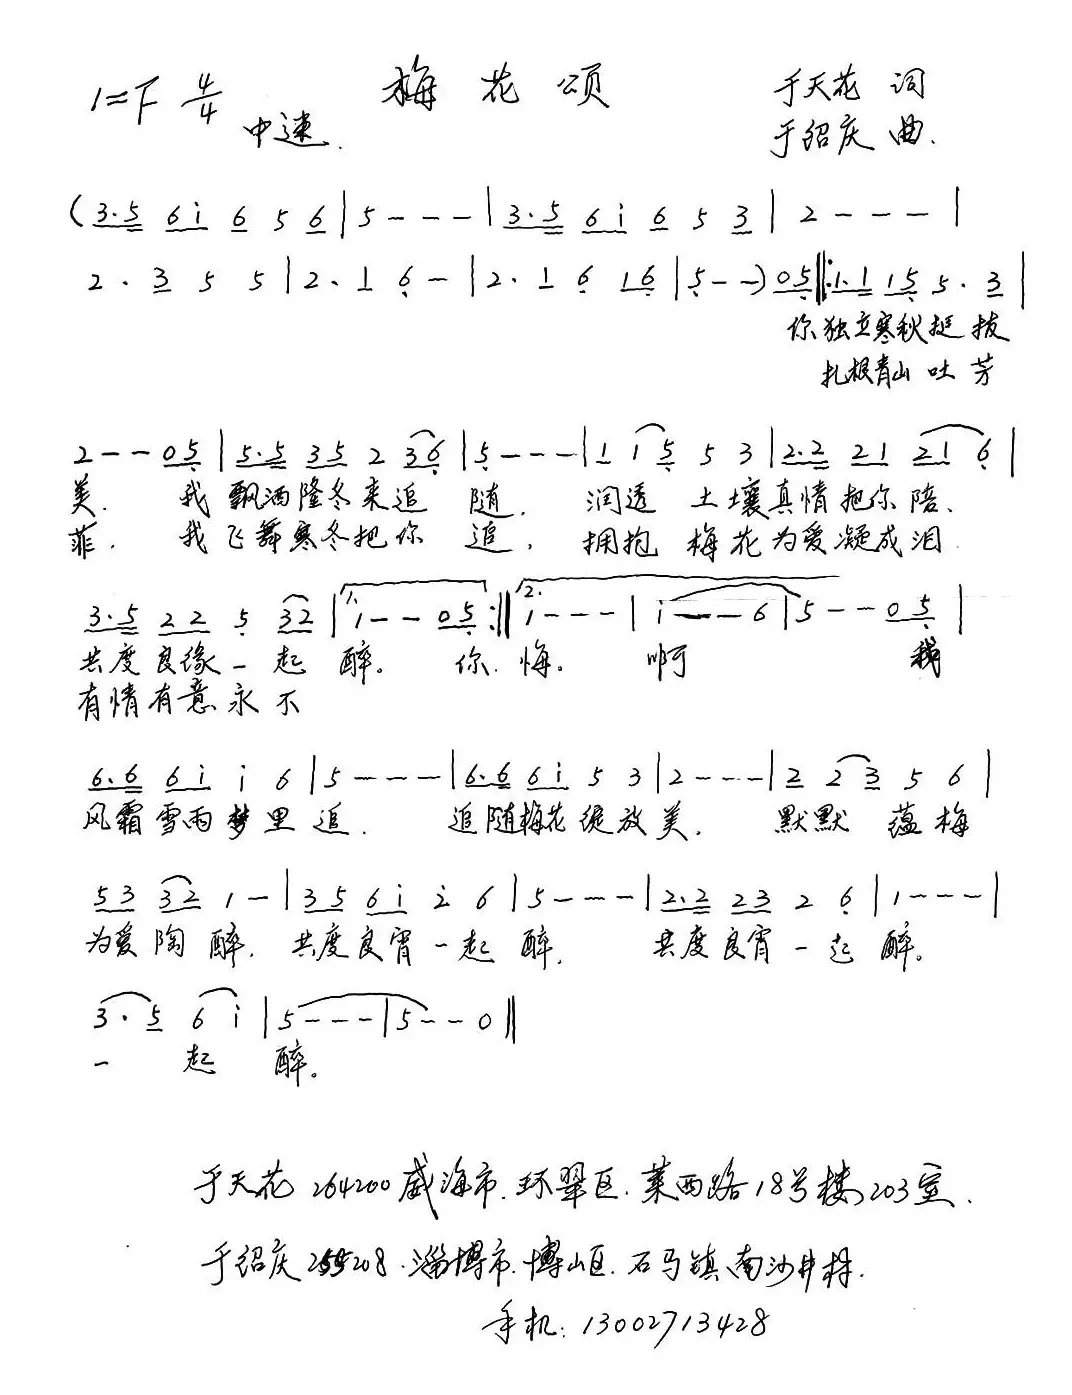 1=F 4/4 梅花颂 于天花 词
中速. 于绍庆 曲.
(3·5 6i 6 5 6|5---|3·5 6i 6 5 3|2---|
2·3 5 5|2·1 6-|2·1 6 16|5--)05‖:1·1 15 5·3|
你独立寒秋挺拔
扎根青山吐芳
2--05|5·5 35 2 36|5---|1 1 5 5 3|2·2 21 21 6|
美. 我飘洒隆冬来追随. 润透土壤真情把你陪.
菲. 我飞舞寒冬把你追. 拥抱梅花为爱凝成泪
3·5 22 5 32|1. 1--05:‖2. 1---|i--6|5--05|
共度良缘一起醉。你.悔。啊 我
有情有意永不
6·6 6i i 6|5---|6·6 6i 5 3|2---|2 2 3 5 6|
风霜雪雨梦里追. 追随梅花绽放美. 默默蕴梅
53 32 1-|35 6i 2 6|5---|2·2 23 2 6|1---|
为爱陶醉. 共度良宵一起醉. 共度良宵一起醉。
3·5 6 i|5---|5--0‖
一起醉。
于天花 264200威海市.环翠区.莱西路18号楼203室.
于绍庆 255208.淄博市.博山区.石马镇南沙井村.
手机:13002713428